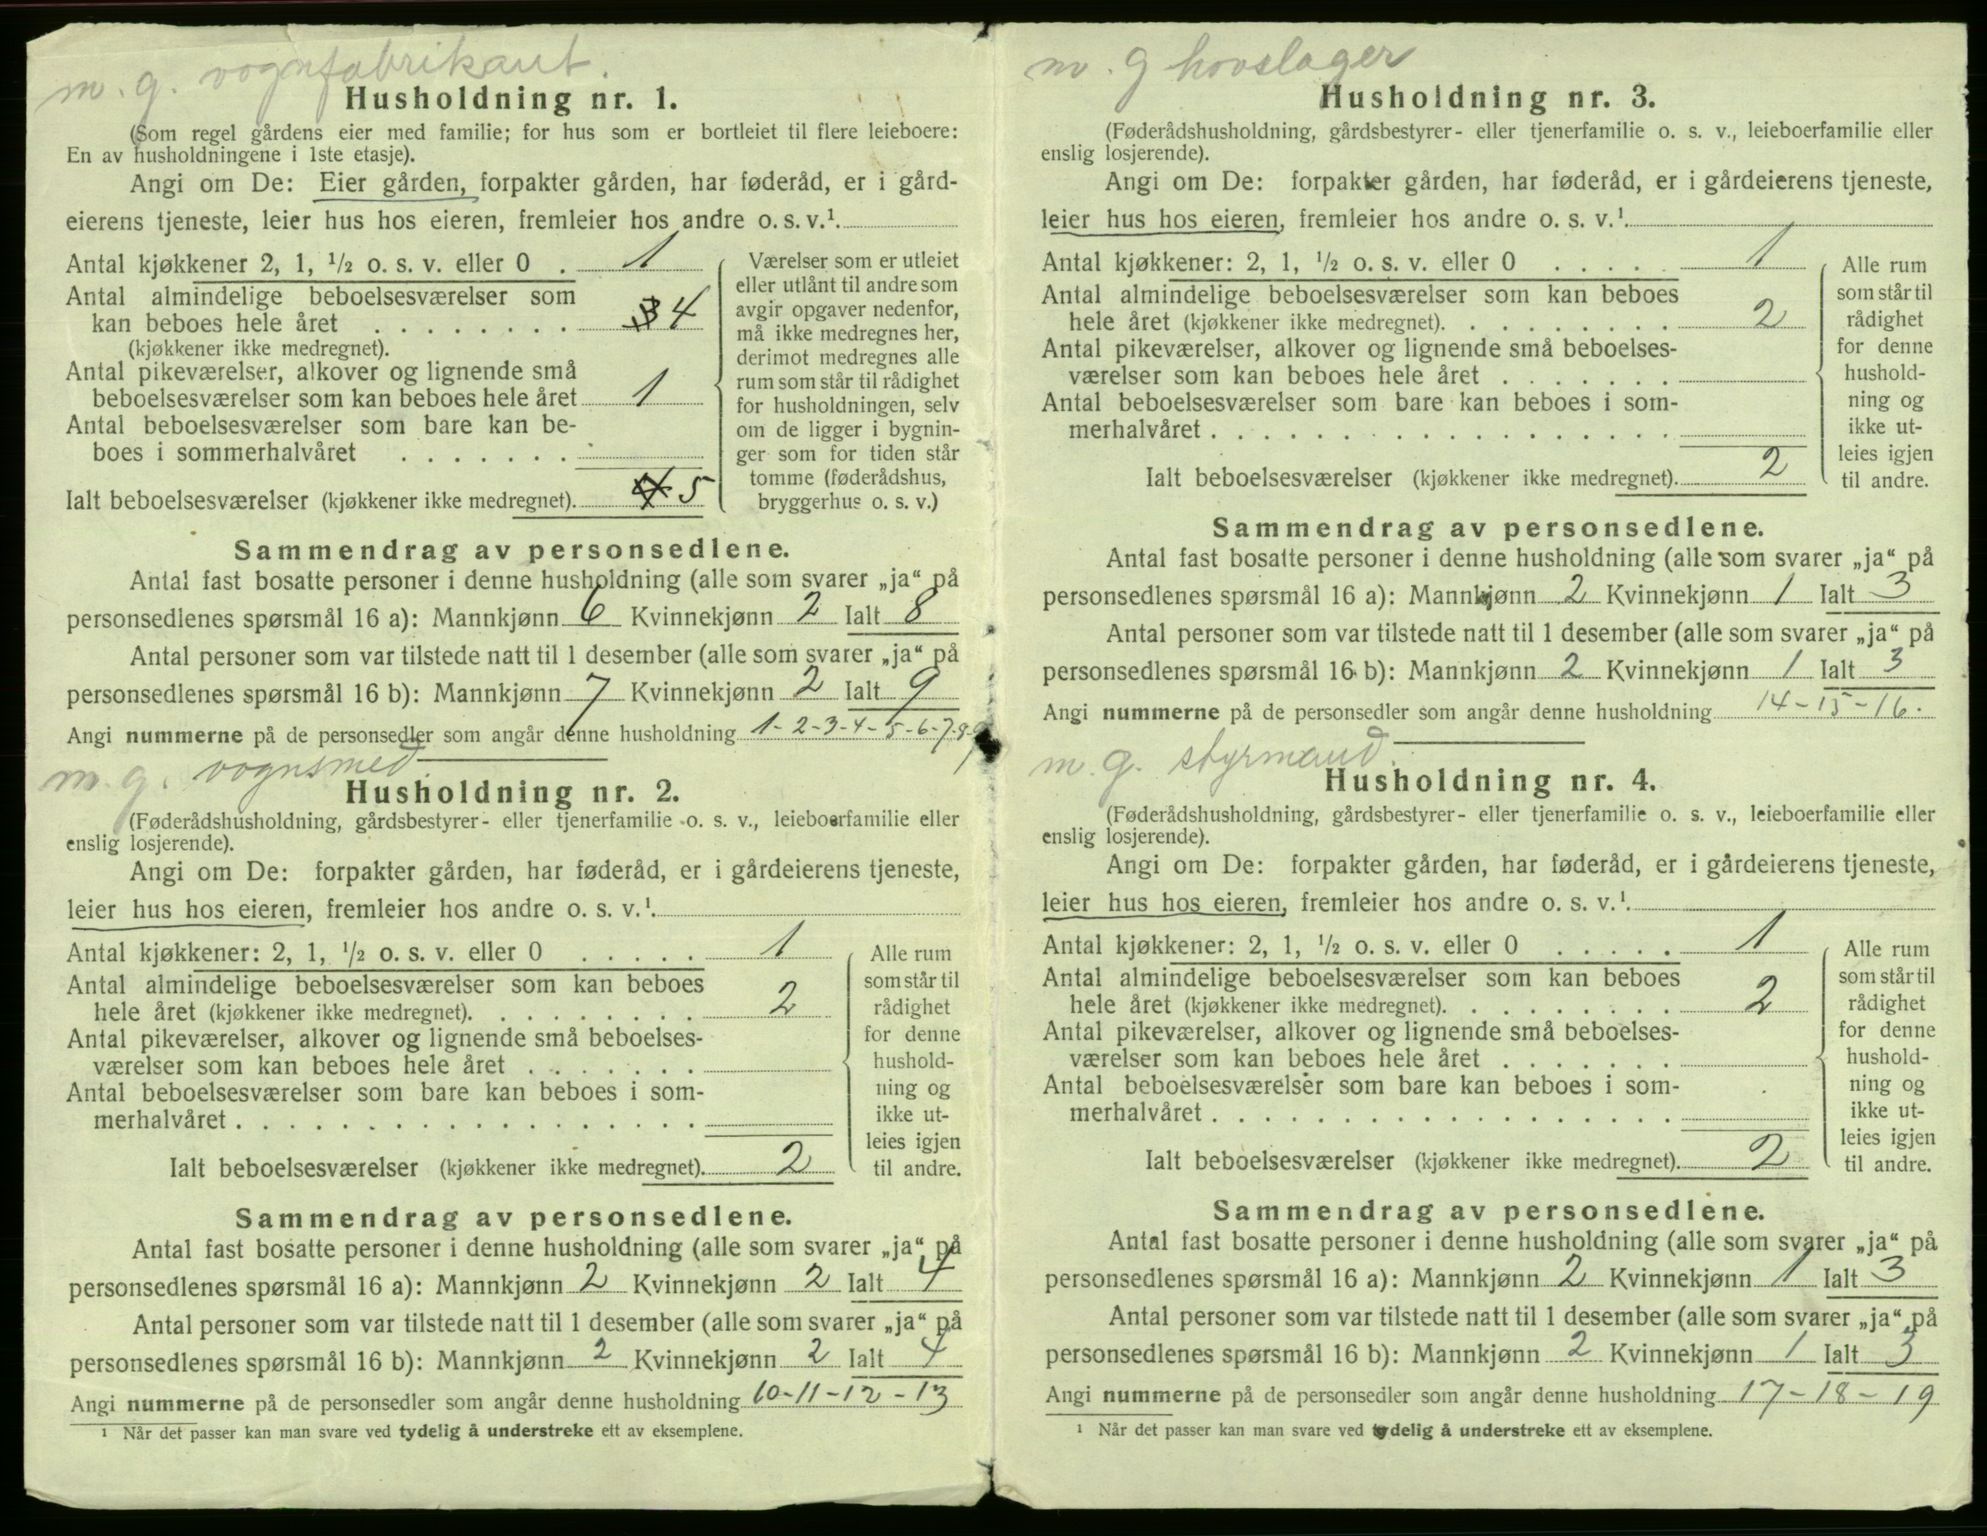 m. g. vognfabrikant.
Husholdning nr. 1.
(Som regel gårdens eier med familie; for hus som er bortleiet til flere leieboere:
En av husholdningene i 1ste etasje).
Angi om De: Eier gården, forpakter gården, har føderåd, er i gård-
eierens tjeneste, leier hus hos eieren, fremleier hos andre o. s. v.¹
Antal kjøkkener 2, 1, ½ o. s. v. eller 0 . 1
Antal almindelige beboelsesværelser som
kan beboes hele året . . . . . . . . 3 4
(kjøkkener ikke medregnet).
Antal pikeværelser, alkover og lignende små
beboelsesværelser som kan beboes hele året 1
Antal beboelsesværelser som bare kan be-
boes i sommerhalvåret . . . . . . .
Ialt beboelsesværelser (kjøkkener ikke medregnet). 4 5
Værelser som er utleiet
eller utlånt til andre som
avgir opgaver nedenfor,
må ikke medregnes her,
derimot medregnes alle
rum som står til rådighet
for husholdningen, selv
om de ligger i bygnin-
ger som for tiden står
tomme (føderådshus,
bryggerhus o. s. v.)
Sammendrag av personsedlene.
Antal fast bosatte personer i denne husholdning (alle som svarer „ja“ på
personsedlenes spørsmål 16 a): Mannkjønn 6 Kvinnekjønn 2 Ialt 8
Antal personer som var tilstede natt til 1 desember (alle som svarer „ja“ på
personsedlenes spørsmål 16 b): Mannkjønn 7 Kvinnekjønn 2 Ialt 9
Angi nummerne på de personsedler som angår denne husholdning 1-2-3-4-5-6-7-8-9
m. g. vognsmed.
Husholdning nr. 2.
(Føderådshusholdning, gårdsbestyrer- eller tjenerfamilie o. s. v., leieboerfamilie eller
enslig losjerende).
Angi om De: forpakter gården, har føderåd, er i gårdeierens tjeneste,
leier hus hos eieren, fremleier hos andre o. s. v.¹
Antal kjøkkener: 2, 1, ½ o. s. v. eller 0 . . . . . 1
Antal almindelige beboelsesværelser som kan beboes
hele året (kjøkkener ikke medregnet). . . . . . . . . 2
Antal pikeværelser, alkover og lignende små beboelses-
værelser som kan beboes hele året . . . . . . .
Antal beboelsesværelser som bare kan beboes i som-
merhalvåret . . . . . . . . . . . . . . . . . .
Ialt beboelsesværelser (kjøkkener ikke medregnet). 2
Alle rum
som står til
rådighet
for denne
hushold-
ning og
ikke ut-
leies igjen
til andre.
Sammendrag av personsedlene.
Antal fast bosatte personer i denne husholdning (alle som svarer „ja“ på
personsedlenes spørsmål 16 a): Mannkjønn 2 Kvinnekjønn 2 Ialt 4
Antal personer som var tilstede natt til 1 desember (alle som svarer „ja“ på
personsedlenes spørsmål 16 b): Mannkjønn 2 Kvinnekjønn 2 Ialt 4
Angi nummerne på de personsedler som angår denne husholdning 10-11-12-13
¹ Når det passer kan man svare ved tydelig å understreke ett av eksemplene.
m. g hovslager
Husholdning nr. 3.
(Føderådshusholdning, gårdsbestyrer- eller tjenerfamilie o. s. v., leieboerfamilie eller
enslig losjerende).
Angi om De: forpakter gården, har føderåd, er i gårdeierens tjeneste,
leier hus hos eieren, fremleier hos andre o. s. v.¹
Antal kjøkkener: 2, 1, ½ o. s. v. eller 0 . . . . . 1
Antal almindelige beboelsesværelser som kan beboes
hele året (kjøkkener ikke medregnet). . . . . . . . . 2
Antal pikeværelser, alkover og lignende små beboelses-
værelser som kan beboes hele året . . . . . . .
Antal beboelsesværelser som bare kan beboes i som-
merhalvåret . . . . . . . . . . . . . . . . . .
Ialt beboelsesværelser (kjøkkener ikke medregnet). 2
Alle rum
som står til
rådighet
for denne
hushold-
ning og
ikke ut-
leies igjen
til andre.
Sammendrag av personsedlene.
Antal fast bosatte personer i denne husholdning (alle som svarer „ja“ på
personsedlenes spørsmål 16 a): Mannkjønn 2 Kvinnekjønn 1 Ialt 3
Antal personer som var tilstede natt til 1 desember (alle som svarer „ja“ på
personsedlenes spørsmål 16 b): Mannkjønn 2 Kvinnekjønn 1 Ialt 3
Angi nummerne på de personsedler som angår denne husholdning 14-15-16.
m. g. styrmand.
Husholdning nr. 4.
(Føderådshusholdning, gårdsbestyrer- eller tjenerfamilie o. s. v., leieboerfamilie eller
enslig losjerende).
Angi om De: forpakter gården, har føderåd, er i gårdeierens tjeneste,
leier hus hos eieren, fremleier hos andre o. s. v.¹
Antal kjøkkener: 2, 1, ½ o. s. v. eller 0 . . . . . 1
Antal almindelige beboelsesværelser som kan beboes
hele året (kjøkkener ikke medregnet). . . . . . . . . 2
Antal pikeværelser, alkover og lignende små beboelses-
værelser som kan beboes hele året . . . . . . .
Antal beboelsesværelser som bare kan beboes i som-
merhalvåret . . . . . . . . . . . . . . . . . .
Ialt beboelsesværelser (kjøkkener ikke medregnet). 2
Alle rum
som står til
rådighet
for denne
hushold-
ning og
ikke ut-
leies igjen
til andre.
Sammendrag av personsedlene.
Antal fast bosatte personer i denne husholdning (alle som svarer „ja“ på
personsedlenes spørsmål 16 a): Mannkjønn 2 Kvinnekjønn 1 Ialt 3
Antal personer som var tilstede natt til 1 desember (alle som svarer „ja“ på
personsedlenes spørsmål 16 b): Mannkjønn 2 Kvinnekjønn 1 Ialt 3
Angi nummerne på de personsedler som angår denne husholdning 17-18-19
¹ Når det passer kan man svare ved tydelig å understreke ett av eksemplene.